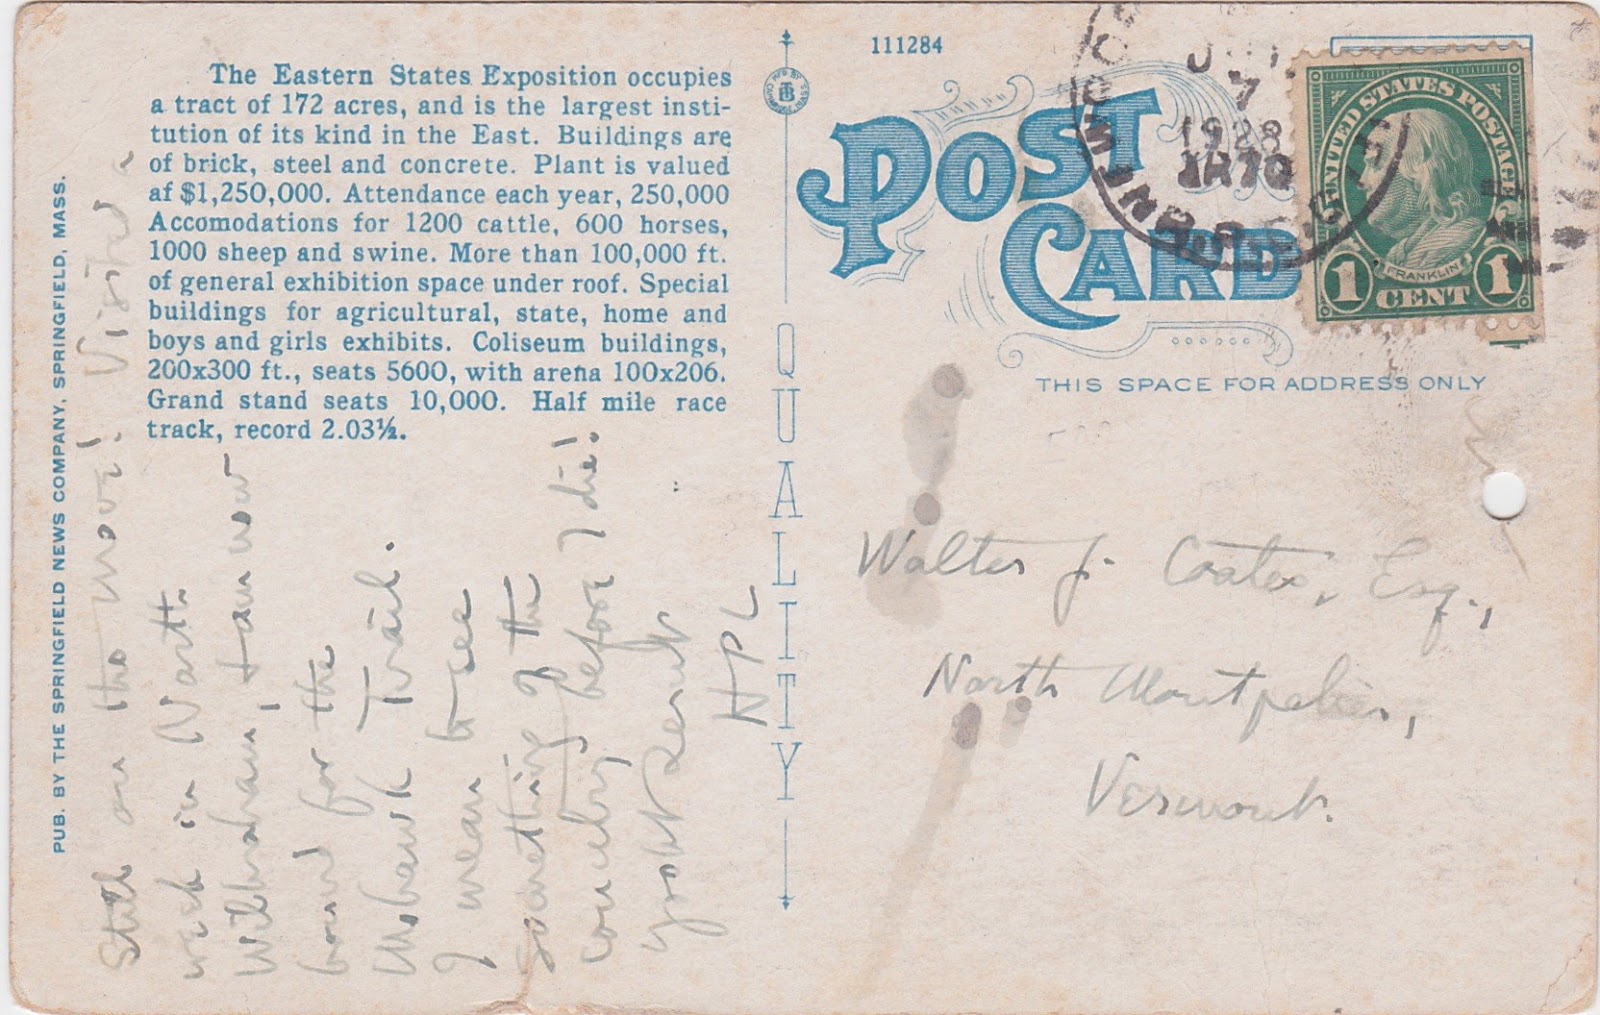 The Eastern States Exposition occupies
a tract of 172 acres, and is the largest insti-
tution of its kind in the East. Buildings are
of brick, steel and concrete. Plant is valued
af $1,250,000. Attendance each year, 250,000
Accomodations for 1200 cattle, 600 horses,
1000 sheep and swine. More than 100,000 ft.
of general exhibition space under roof. Special
buildings for agricultural, state, home and
boys and girls exhibits. Coliseum buildings,
200x300 ft., seats 5600, with arena 100x206.
Grand stand seats 10,000. Half mile race
track, record 2.03½.
PUB. BY THE SPRINGFIELD NEWS COMPANY, SPRINGFIELD, MASS.
Still on the move! Visited a
week in North
Wilbraham, & am now
bound for the
Mohawk Trail.
I mean to see
something of the
country before I die!
HPL
QUALITY
MF'D BY
TB
111284
POST
CARD
THIS SPACE FOR ADDRESS ONLY
7
1928
UNITED STATES POSTAGE
FRANKLIN
1 CENT 1
Walter J. Coates, Esq.,
North Montpelier,
Vermont.